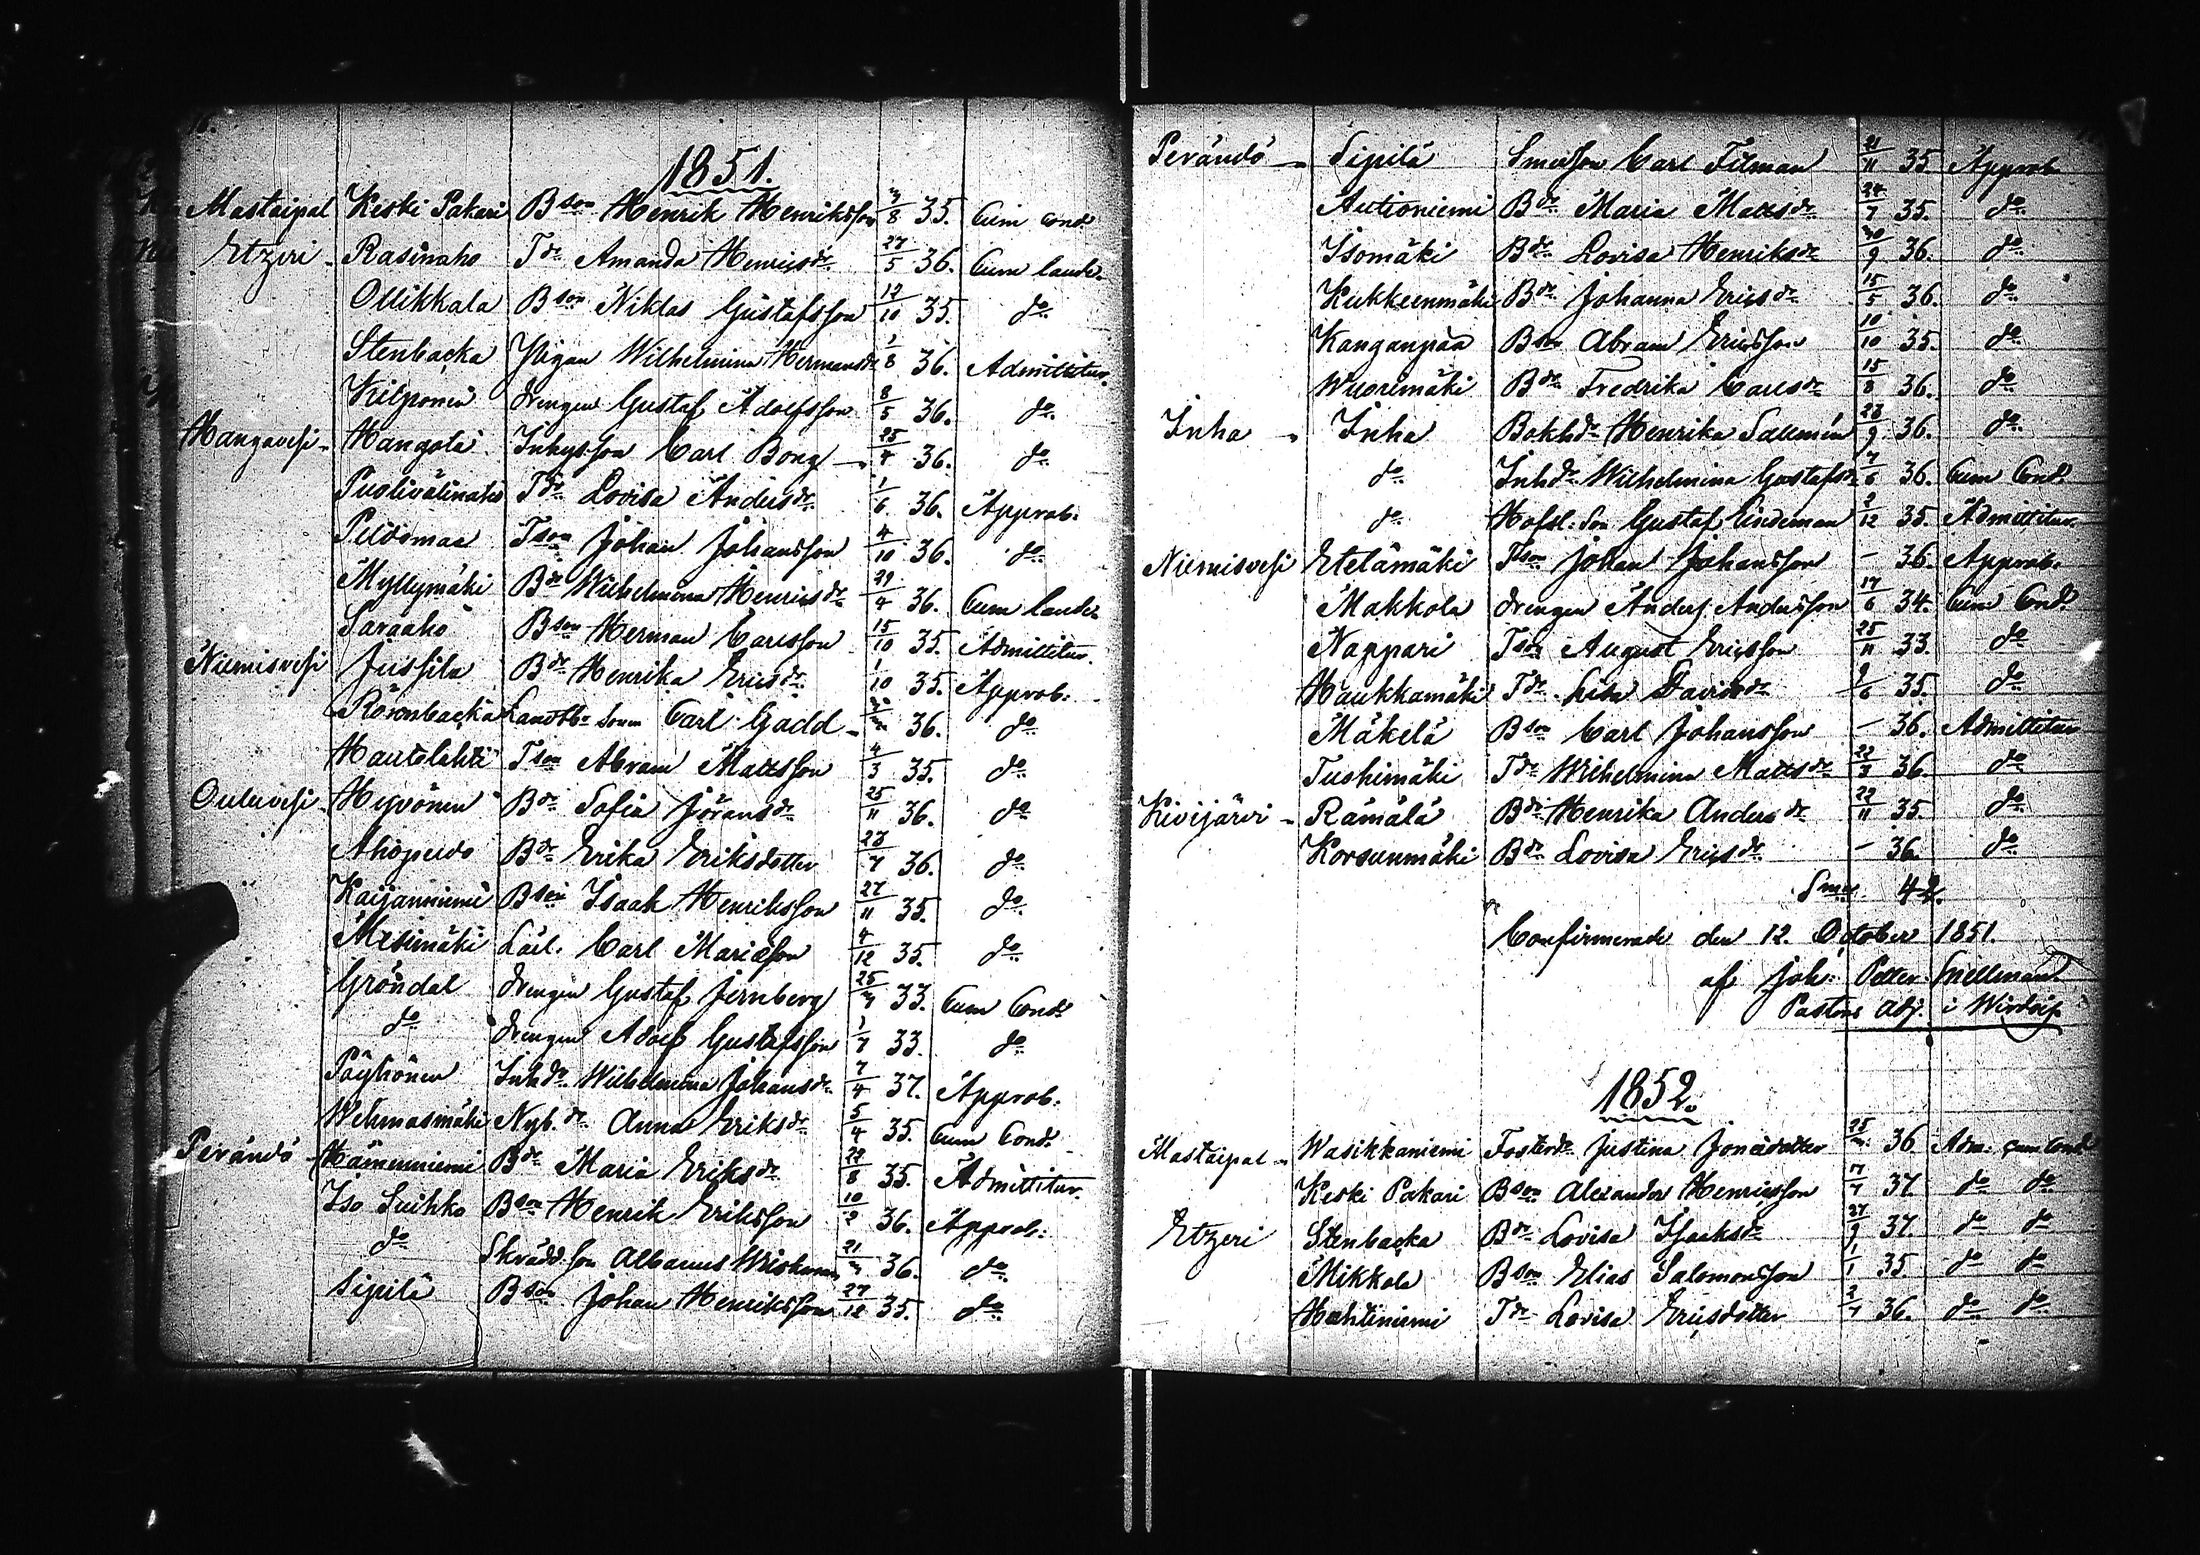 1851.
Mastaipal Keski Pakari Bson Henrik Henriksson 8 35. Cum Cond.
Etzeri Rasinaho Tdr Amanda Henricsdr 27/5 36. Cum laude.
Ollikkala Bson Niklas Gustafsson 12/10 35. do
Stenbacka Pigan Wilhelmina Hermansdr 1/8 36. Admittitur.
Kilponen drengen Gustaf Adolfsson 8/5 36. do
Hangavesi Hangola Inhysson Carl Bong 25/4 36. do
Puolivälinaho Tdr Lovisa Andersdr 1/6 36. Approb.
Peldomaa Tson Johan Johansson 4/10 36. do
Myllymäki Bdr Wilhelmina Henricsdr 29/4 36. Cum laude
Saraaho Bson Herman Carlsson 15/10 35. Admittitur.
Niemisvesi Jussila Bdr Henrika Ericsdr 1/10 35. Approb.
Rönnbacka Landtb. sonen Carl Gadd 36. do
Hautolahti Tson Abram Mattsson 4/3 35. do
Ouluvesi Hyvönen Bdr Sofia Jöransdr 25/11 36. do
Ahopeldo Bdr Erika Eriksdotter 23/7 36. do
Kaijanniemi Bson Isaak Henriksson 27/11 35. do
Mesimäki Lärl. Carl Mariæson 4/12 35. do
Gröndal drengen Gustaf Jernberg 25 33. Cum Cond.
do drengen Adolf Gustafsson 1/7 33. do
Pöyhönen Inhdr Wilhelmina Johansdr 7/4 37. Approb.
Wehmasmäki Nyb.dr Anna Eriksdr 5/4 35. Cum Cond.
Perändö Hämeenniemi Bdr Maria Eriksdr 22/8 35. Admittitur.
Iso Suihko Bson Henrik Eriksson 10/2 36. Approb.
do Skrädd. son Albanus Wickman 21 36. do
Sipilä Bson Johan Henriksson 27/12 35. do
Perändö Sipilä Smedson Carl Filman 21/11 35. Approb.
Autioniemi Bdr Maria Mattsdr 24/7 35. do
Isomäki Bdr Lovisa Henriksdr 30/9 36. do
Kukkeenmäki Bdr Johanna Ericsdr 15/5 36. do
Kanganpää Bson Abram Ericsson 10/10 35. do
Wuorimäki Bdr Fredrika Carlsdr 15/8 36. do
Inha Inha Bokhdr Henrika Salmén 23/9 36. do
do Inhdr Wilhelmina Gustafsdr 7/6 36. Cum Cond.
do Hofsl. son Gustaf Lindeman 2/12 35. Admittitur.
Niemisvesi Etelämäki Tson Johan Johansson – 36. Approb.
Makkola drengen Anders Andersson 17/6 34. Cum Cond.
Nappari Tson August Ericsson 25/11 33. do
Haukkamäki Tdr Lisa Davidsdr 9/6 35. do
Mäkelä Bson Carl Johansson – 36. Admittitur
Tuohimäki Tdr Wilhelmina Mattsdr 22/3 36. do
Kivijärvi Rämälä Bdr Henrika Andersdr 22/11 35. do
Korsunmäki Bdr Lovisa Ericsdr – 36. do
Sma 42.
Confirmerade den 12. October 1851.
af Joh: Petter Snellman
Pastors Adj. i Wirdois
1852.
Mastaipal Wasikkaniemi Fosterdr Justina Jonædotter 25 36 Adm. cum Cond
Keski Pakari Bson Alexander Henricsson 7/7 37. do do
Etzeri Stenbacka Bdr Lovisa Isaaksdr 27/9 37. do do
Mikkola Bson Elias Salomonsson 1/1 35. do do
Hahtiniemi Tdr Lovisa Ericsdotter 2/7 36. do do